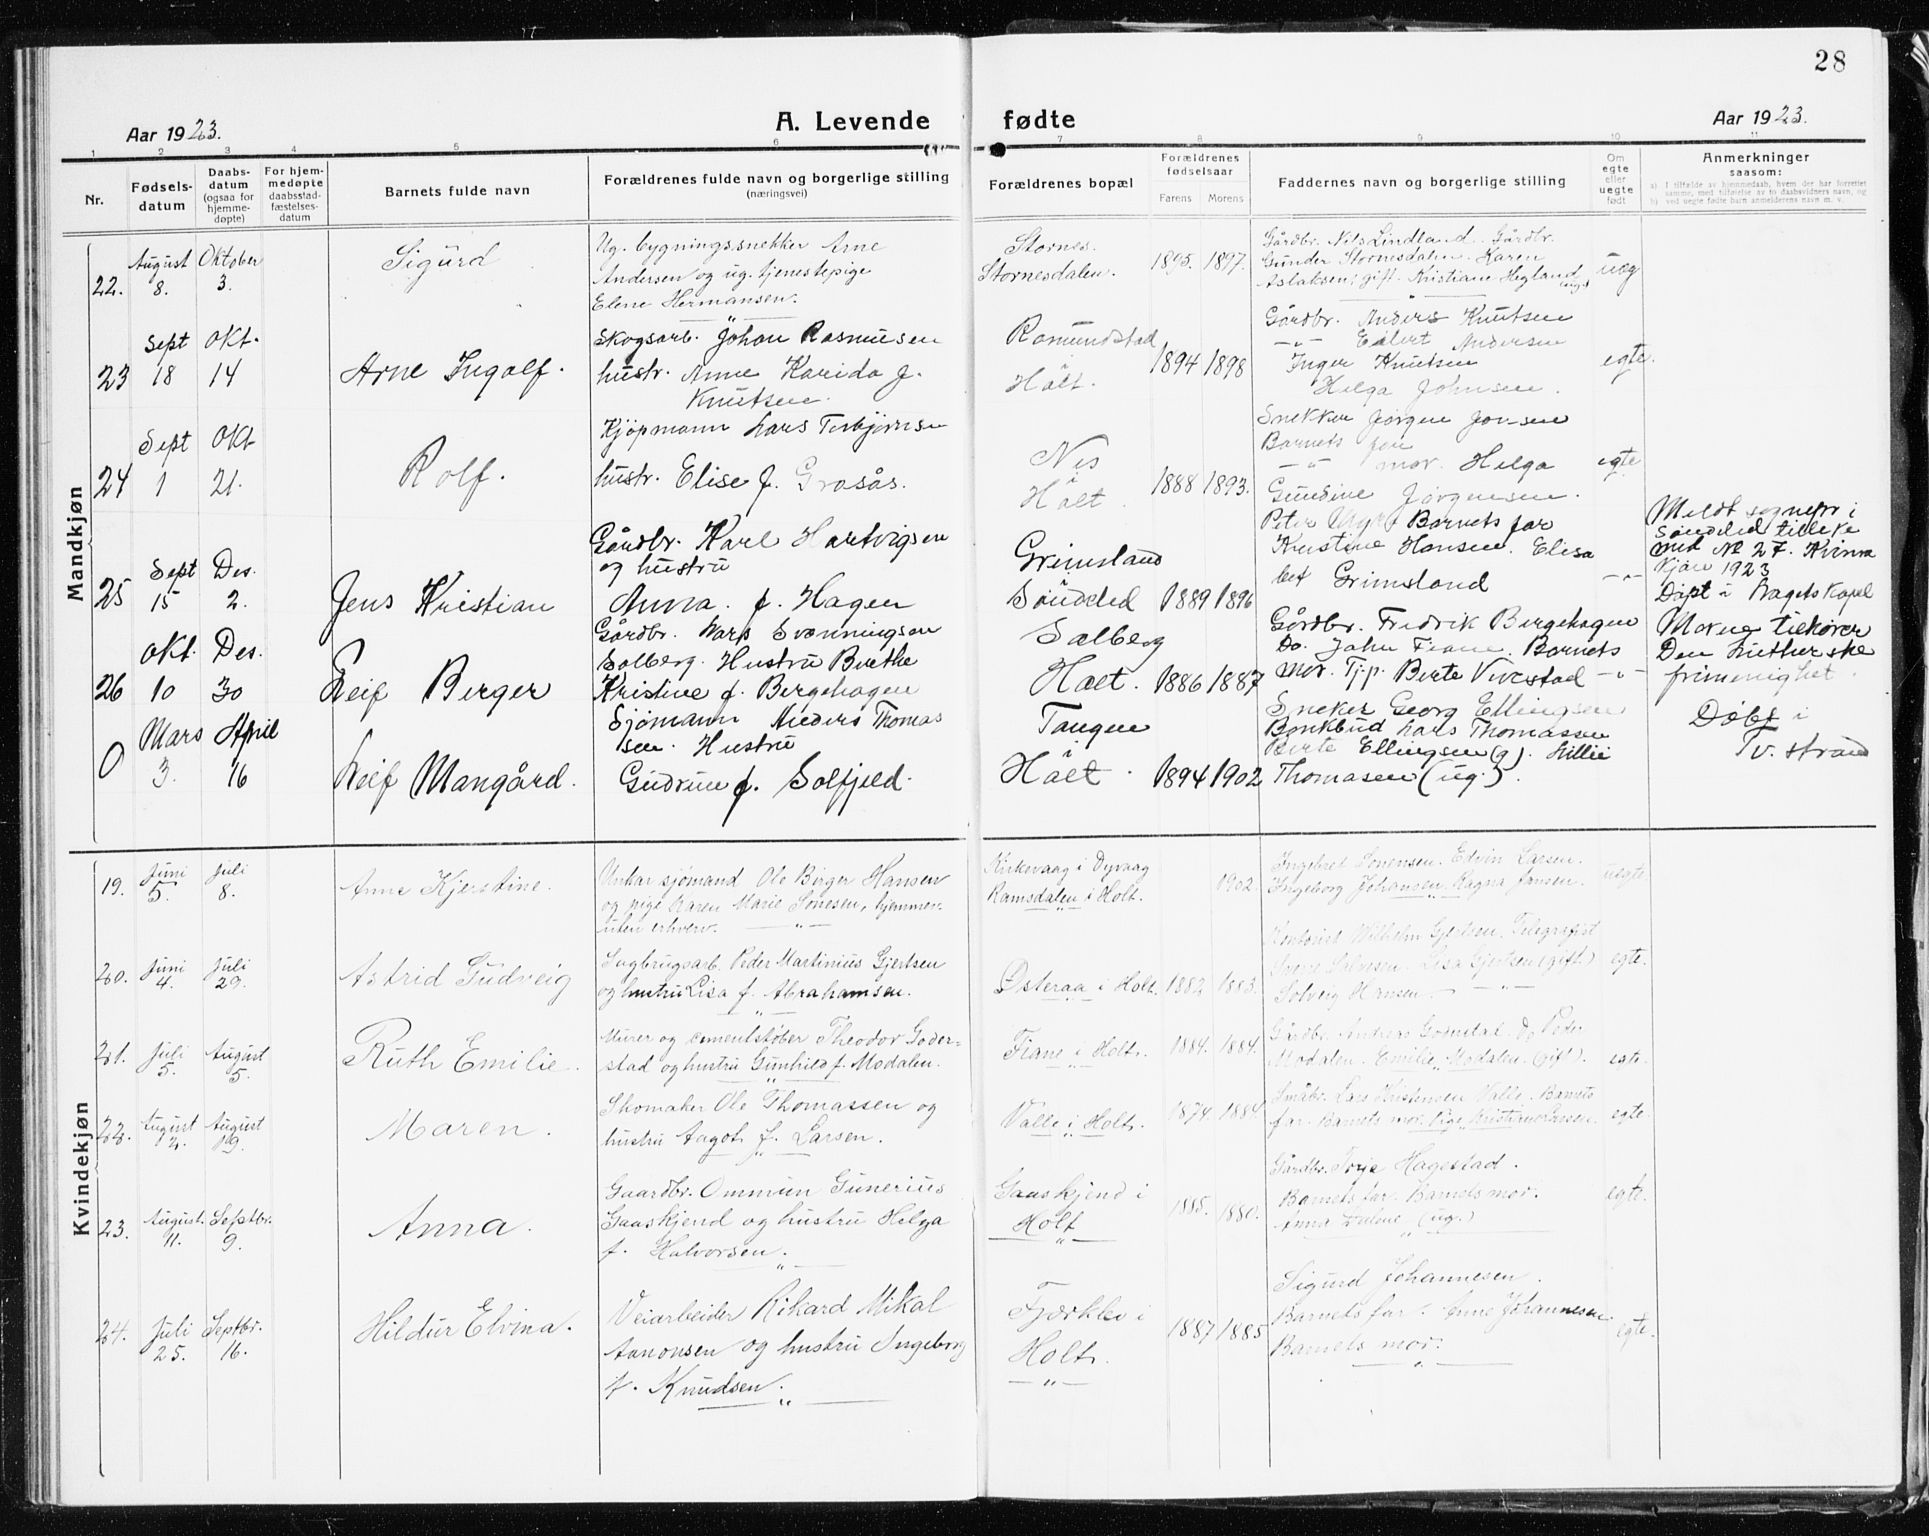 28
Aar 1923.
A. Levende fødte
Aar 1923.
1 2 3 4 5 6 7 8 9 10 11
Nr.
Fødsels-
datum
Daabs-
datum
(ogsaa for
hjemme-
døpte)
For hjem-
medøpte
daabsstad-
fæstelses-
datum
Barnets fulde navn
Forældrenes fulde navn og borgerlige stilling
(næringsvei)
Forældrenes bopæl
Forældrenes
fødselsaar
Farens Morens
Faddernes navn og borgerlige stilling
Om
egte
eller
uegte
født
Anmerkninger
saasom:
a) I tilfælde av hjemmedaab, hvem der har forrettet
samme, med tilføielse av to daabsvidners navn, og
b) ved uegte fødte barn anmelderens navn m. v.
Mandkjøn
22.
August
8.
Oktober
3.
Sigurd
Ug. bygningssnekker Arne
Andersen og ug. tjenestepige
Elene Hermansen.
Stornes.
Stornesdalen.
1895. 1897.
Gårdbr. Nils Lindland. Gårdbr.
Gunder Stornesdalen. Karen
Aslaksen, gift. Kristiane Hegland (ug)
ueg
23
Sept
18
Okt.
14
Arne Ingolf.
Skogsarb. Johan Rasmusen
hustr. Anne Karida f.
Knutsen.
Romundstad
i
Hålt.
1894 1898
Gårdbr. Anders Knutsen
—"— Eilert Andersen
Inger Knutsen
Helga Johnsen.
egte.
24
Sept
1
Okt
21.
Rolf.
Kjøpmann Lars Terbjørnsen
hustr. Elise f. Grasås.
Nes
Hålt
1888 1893.
Snekker Jørgen Jonsen
Barnets far
—"— mor. Helga
Gundine Jørgensen.
egte
25
Sept
15
Des.
2.
Jens Kristian
Gårdbr. Karl Hartvigsen
og hustru
Anna. f. Hagen
Grimsland
Søndeled
1889 1896
Peter Barnets far
Kristine Hansen. Elisa
bet Grimsland
—"—
Meldt sognepr i
Søndeled tilleke
med No 27. Kvinne
kjøn 1923
Døpt i Kapel
26
Okt.
10
Des.
30
Leif Berger
Gårdbr. Lars Svenningsen
Solberg. Hustru Birthe
Kristine f. Bergehagen
Solberg
Holt.
1886 1887
Gårdbr. Fredrik Bergehagen
Do. John Fiane. Barnets
mor. Tjp. Berte Vivestad
—"—
Morne tilhører
Den Lutherske
frimenighet.
0
Mars
3.
April
16
Leif Mangård.
Sjømann Anders Thomas
sen. Hustru
Gudrun f. Solfjeld.
Tangen
i
Hålt.
1894 1902
Sneker Georg Ellingsen
Bonkbud Lars Thomassen
Berte Ellingsen (g). Lillie
Thomasen (ug.).
Døbt i
Tv. strand
Kvindekjøn
19.
Juni
5.
Juli
8.
Anne Kjerstine.
Unkar sjømand Ole Birger Hansen
og pige Karen Marie Sønesen, hjemmev.
uten erhverv. —"—
Kirkevaag i Dyvaag
Ramsdalen i Holt.
1902.
Ingebret Sønensen. Edvin Larsen.
Ingeborg Johansen. Ragna Jansen.
uegte.
20.
Juni
4.
Juli
29.
Astrid Gudveig
Sagbrugsarb. Peder Martinius Gjertsen
og hustru Lisa f. Abrahamsen.
Østeraa i Holt.
1882 1883.
Kontorist Wilhelm Gjertsen. Telegrafist
Sverre Salvesen. Lisa Gjertsen (gift.)
Solveig Hansen. —"—
egte.
21.
Juli
5.
August
5.
Ruth Emilie.
Murer og cementstøber Theodor Goder-
stad og hustru Gunhild f. Modalen.
Fiane i Holt.
1884. 1884.
Gårdbr. Andreas Goderstad. Do Peder
Modalen. Emilie Modalen (gift).
egte.
22.
August
12.
August
19.
Maren.
Skomaker Ole Thomassen og
hustru Aagot f. Larsen.
Valle i Holt.
1874. 1884.
Småbr. Lars Kristensen Valle. Barnets
far. Barnets mor. Pige Kristiane Larsen.
egte.
23.
August.
11.
Septbr.
9.
Anna.
Gaardbr. Ommun Gunerius
Gaaskjend og hustru Helga
f. Halvorsen.
Gaaskjend i
Holt
1885. 1880.
Gårdbr. Terje Hagestad.
Barnets far. Barnets mor.
Anna (ug.)
egte.
24.
Juli
25.
Septbr.
16.
Hildur Elvina.
Veiarbeider Rikard Mikal
Aanonsen og hustru Ingeborg
f. Knudsen.
Fjærklev i
Holt.
—"—
1887 1885
Sigurd Johannesen.
Barnets far. Anne Johannesen
Barnets mor.
egte.